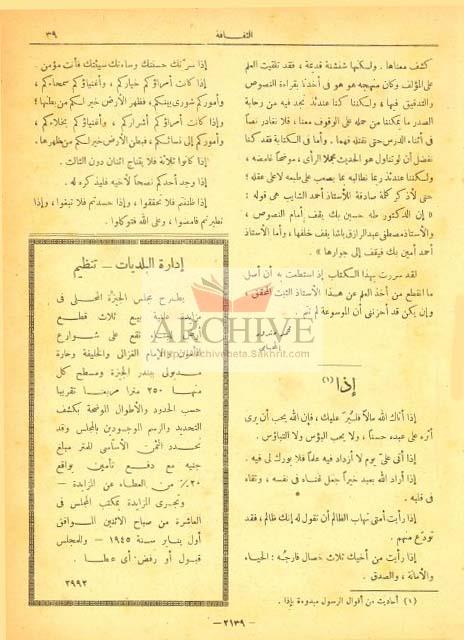 الثقافة
٣٩
كشف معناها. ولكنها شنشنة قديمة، فقد تلقيت العلم
على المؤلف وكان منهجه هو هو فى أخذنا بقراءة النصوص
والتدقيق فيها، ولكننا كنا عندئذ نجد فيه من رحابة
الصدر ما يمكننا من حمله على الوقوف معنا، فلا نغادر نصاً
فى أثناء الدرس حتى نقتله فهما. وأما فى الكتابة فقد كنا
نفضل أن لو تناول هو الحديث مجملا الرأى، موضحاً غامضه،
ولكننا عندئذ ربما نطالبه بما يصعب على طبعه لا على عقله؛
حتى لأذكر كلمة صادقة للأستاذ أحمد الشايب هى قوله:
« إن الدكتور طه حسين بك يقف أمام النصوص،
والأستاذ مصطفى عبد الرازق باشا يقف خلفها، وأما الأستاذ
أحمد أمين بك فيقف إلى جوارها ».
لقد سررت بهذا الكتاب إذ استطعت به أن أصل
ما انقطع من أخذ العلم عن هذا الأستاذ الثبت المحقق،
وإن يكن قد أحزننى أن الموسوعة لم تتم.
محمد مندور
المحامى
إذا (١)
إذا أتاك الله مالاً فليُـرَ عليك، فإن الله يحب أن يرى
أثره على عبده حسنا، ولا يحب البؤس ولا التباؤس.
إذا أتى علىّ يوم لا أزداد فيه علما فلا بورك لى فيه.
إذا أراد الله بعبد خيراً جعل غناه فى نفسه، وتقاه
فى قلبه.
إذا رأيت أمتى تهاب الظالم أن تقول له إنك ظالم، فقد
تودّع منهم.
إذا رأيت من أخيك ثلاث خصال فارجُه: الحياء
والأمانة، والصدق.
(١) أحاديث من أقوال الرسول مبدوءة بإذا.
إذا سرّتك حسنتك وساءتك سيئتك فأنت مؤمن.
إذا كانت أمراؤكم خياركم، وأغنياؤكم سمحاءكم،
وأموركم شورى بينكم، فظهر الأرض خير لكم من بطنها؛
وإذا كانت أمراؤكم أشراركم، وأغنياؤكم بخلاءكم،
وأموركم إلى نسائكم، فبطن الأرض خير لكم من ظهرها.
إذا كانوا ثلاثة فلا يتناج اثنان دون الثالث.
إذا وجد أحدكم نصحاً لأخيه فليذكره له.
إذا ظننتم فلا تحققوا، وإذا حسدتم فلا تبغوا، وإذا
تطيرتم فامضوا، وعلى الله فتوكلوا.
إدارة البلديات — تنظيم
يطرح مجلس الجيزة المحلى فى
مزايدة علنية بيع ثلاث قطع
أرض تقع على شوارع
المأمون والإمام الغزالى والخليفة وحارة
مدبولى ببندر الجيزة ومسطح كل
منها ٢٥٠ مترا مربعا تقريبا
حسب الحدود والأطوال الموضحة بكشف
التحديد والرسم الموجودين بالمجلس وقد
تحدد الثمن الأساسى للمتر مبلغ
جنيه مع دفع تأمين بواقع
٢٠٪ من العطاء عن المزايدة —
وتجرى المزايدة بمكتب المجلس فى
العاشرة من صباح الاثنين الموافق
أول يناير سنة ١٩٤٥ — والمجلس
قبول أو رفض أى عطاء.
٢٩٩٢
— ٢١٣٩ —
ARCHIVE
http://Archivebeta.Sakhrit.com